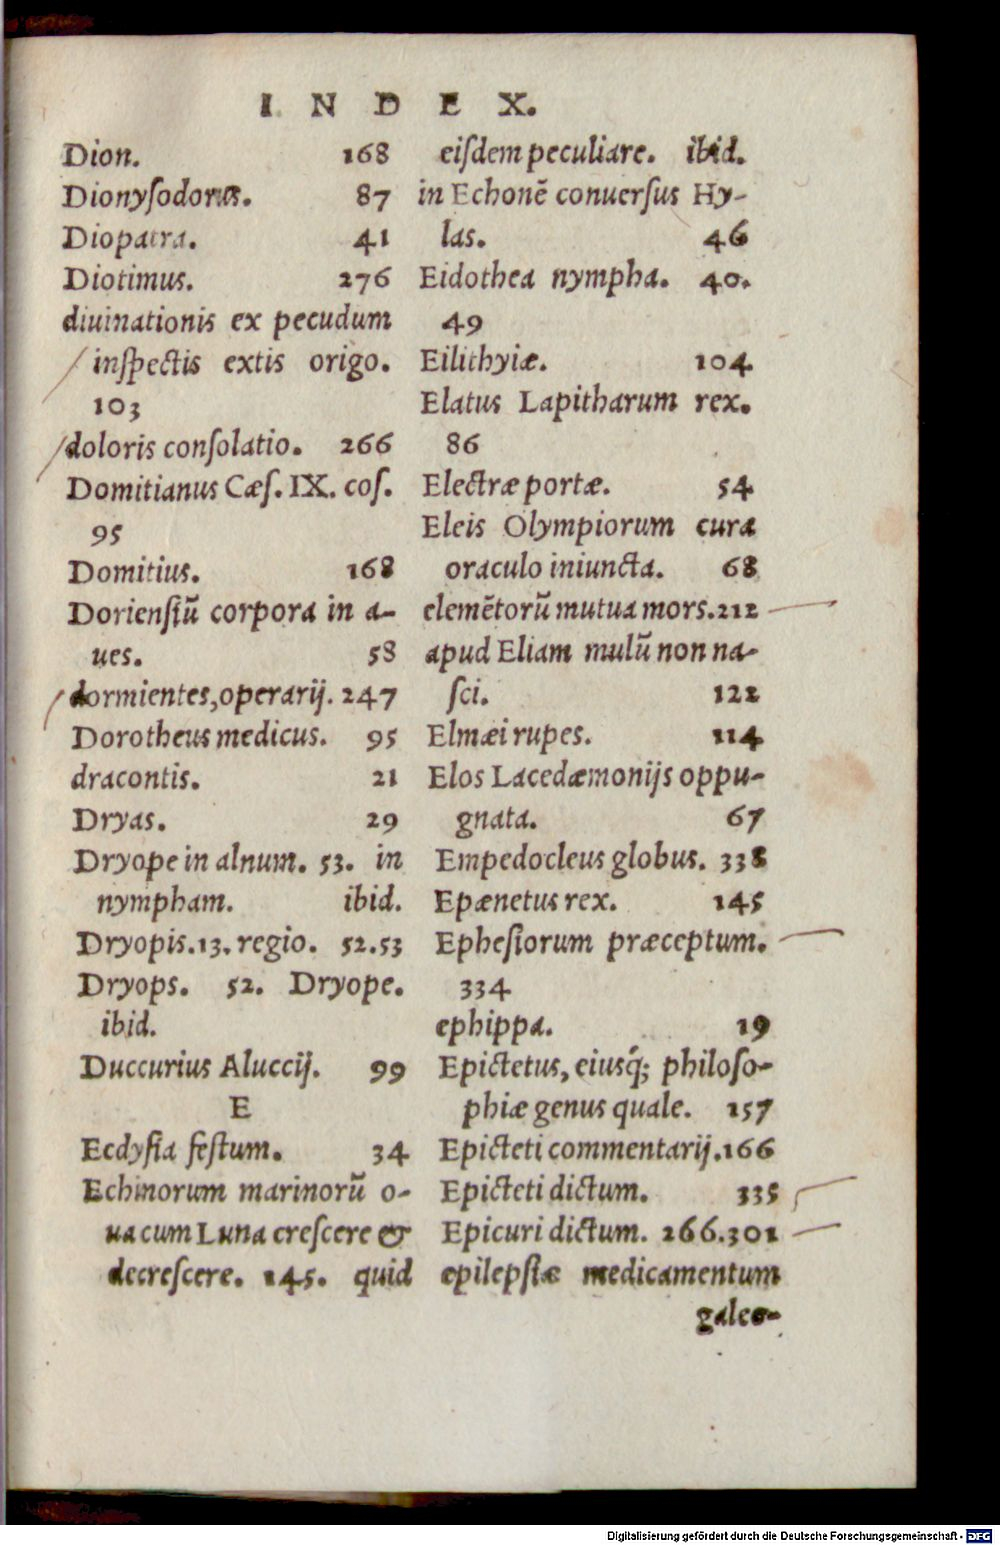 INDEX.
Dion. 168
Dionysodorus. 87
Diopatra. 41
Diotimus. 276
diuinationis ex pecudum
inſpectis extis origo.
103
doloris conſolatio. 266
Domitianus Cæſ. IX. coſ.
95
Domitius. 168
Dorienſiū corpora in a-
ues. 58
dormientes, operarij. 247
Dorotheus medicus. 95
dracontis. 21
Dryas. 29
Dryope in alnum. 53. in
nympham. ibid.
Dryopis. 13. regio. 52.53
Dryops. 52. Dryope.
ibid.
Duccurius Aluccij. 99
E
Ecdyſia feſtum. 34
Echinorum marinorū o-
ua cum Luna creſcere &
decreſcere. 145. quid
eiſdem peculiare. ibid.
in Echonē conuerſus Hy-
las. 46
Eidothea nympha. 40.
49
Eilithyiæ. 104
Elatus Lapitharum rex.
86
Electræ portæ. 54
Eleis Olympiorum cura
oraculo iniuncta. 68
elemētorū mutua mors. 212
apud Eliam mulū non na-
ſci. 122
Elmæi rupes. 114
Elos Lacedæmonijs oppu-
gnata. 67
Empedocleus globus. 338
Epænetus rex. 145
Epheſiorum præceptum.
334
ephippa. 19
Epictetus, eiusq́; philoſo-
phiæ genus quale. 157
Epicteti commentarij. 166
Epicteti dictum. 335
Epicuri dictum. 266.301
epilepſiæ medicamentum
galeo-
Digitalisierung gefördert durch die Deutsche Forschungsgemeinschaft - DFG